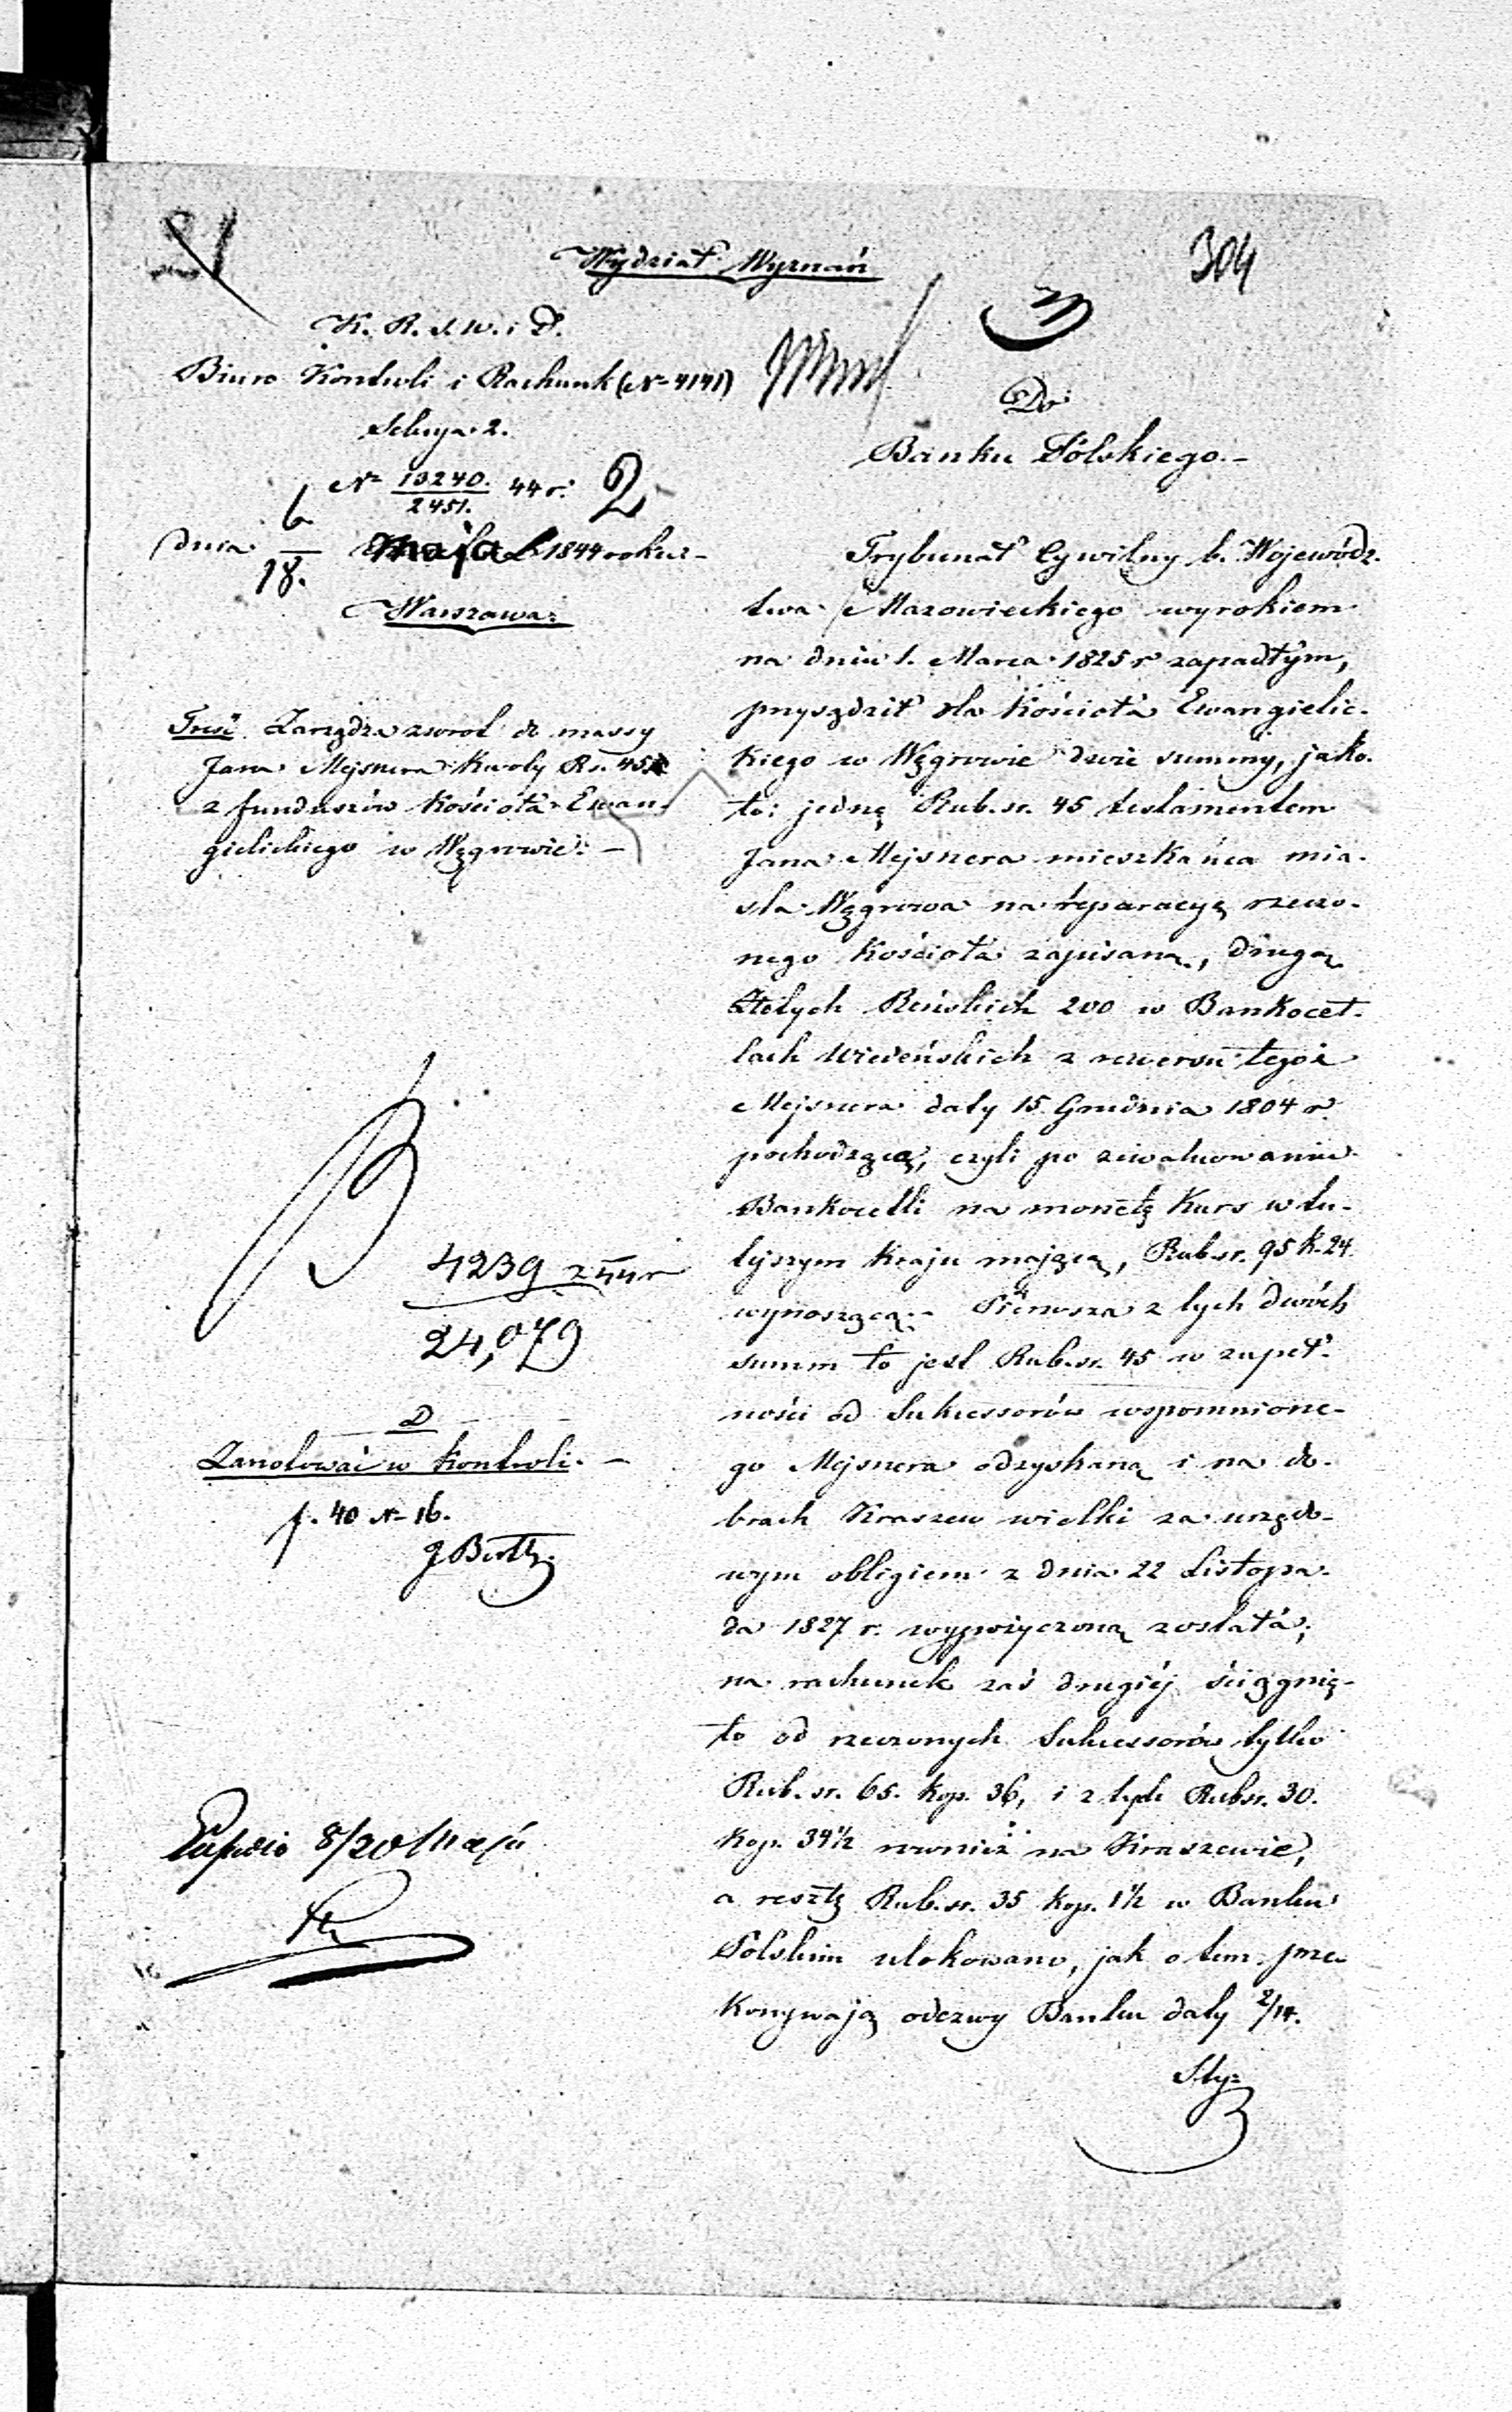 304
Wydział Wyznań
K. R. S. W. i D.
Biuro Kontroli i Rachunk (N= 4141)
Sekcya 2.
N= 13240. 44 r. 2
2451.
dnia 6/18. Maja 1844 roku.-
Warszawa.
Treść Zarządza zwrot do massy
Jana Mejsnera kwoty Rs. 45
z funduszów kościoła Ewan-
gielickiego w Węgrowie. -
4239 z 44 r
24,079
D
Zanotować w kontroli. -
f. 40 N= 16.
8/20 Maja
Do
Banku Polskiego.-
Trybunał Cywilny b. Wojewódz-
twa Mazowieckiego wyrokiem
na dniu 1. Marca 1825 r zapadłym,
przysądził dla kościoła Ewangielic-
kiego w Węgrowie dwie summy, jako-
to: jednę Rub. sr. 45 testamentem
Jana Mejsnera mieszkańca mia-
sta Węgrowa na reparacyę rzeczo-
nego kościoła zapisaną, drugą
Złotych Reńskich 200 w Bankocet-
lach Wiedeńskich z rewersu tegoż
Mejsnera daty 15 Grudnia 1804 r.
pochodzącą, czyli po zewaluowaniu
Bankocetli na monetę kurs w tu-
tejszym kraju mającą, Rub sr. 95 k. 24.
wynoszącą.- Piérwsza z tych dwóch
summ to jest Rub. sr. 45 w zupeł-
ności od Sukcessorów wspomnione-
go Mejsnera odzyskaną i na do-
brach Kraszew wielki za urzędo-
wym obligiem z dnia 22 Listopa-
da 1827 r. wypożyczoną została;
na rachunek zaś drugiéj ściągnię-
to od rzeczonych Sukcessorów tylko
Rub. sr. 65. kop. 36, i z tych Rub sr. 30.
kop. 34 1/2 również na Kraszewie,
a resztę Rub. sr. 35 kop. 1 1/2 w Banku
Polskim ulokowano, jak o tem prze-
konywają odezwy Banku daty 2/14.
Sty=